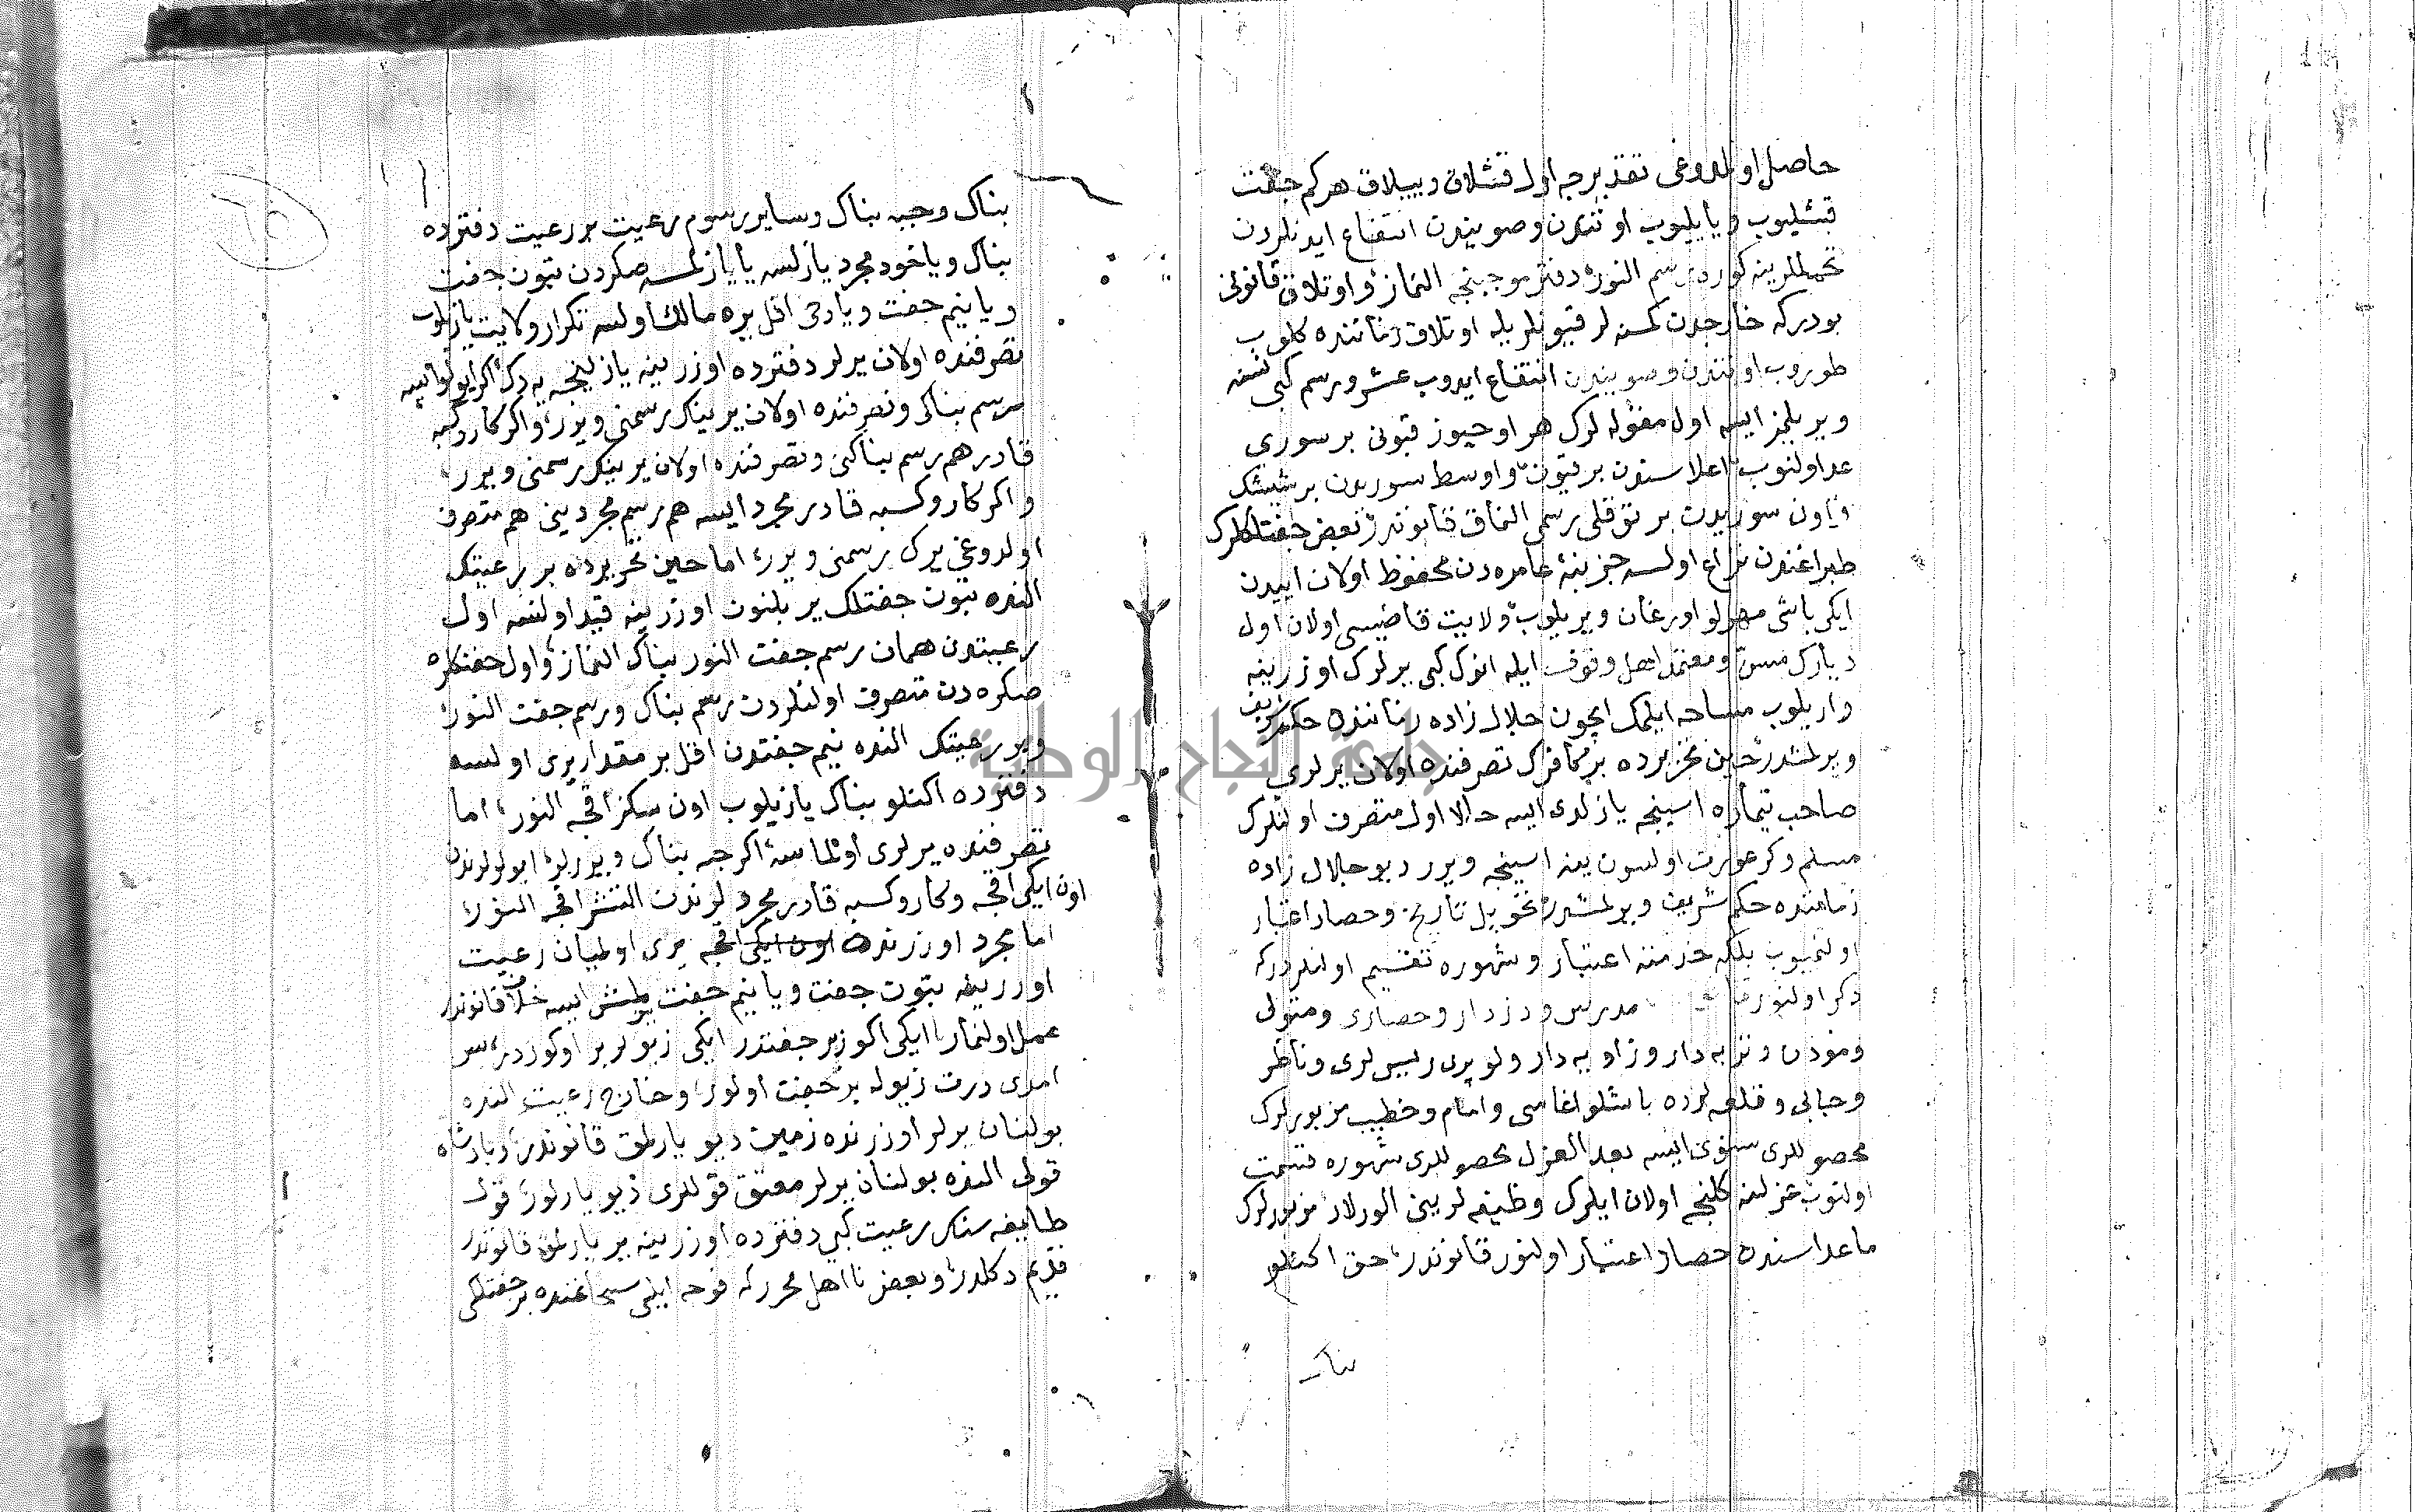 حاصل اولدوغی تقدیرجه اول قشلاق و ییلاق هر کم جفت
قیشلیوب و یایلیوب اوتندن و صویندن انتفاع ایدنلردن
تحمللرینه کوره رسم النور دفتر موجبنجه النماز و اوتلاق قانونی
بودر که خارجدن کمسنه لر قیونلریله اوتلاق زماننده کلوب
طوروب اوتندن و صویندن انتفاع ایدوب عشر و رسم کبی نسنه
ویریلمز ایسه اول مقوله لرک هر اوچیوز قیونی بر سوری
عد اولنوب اعلاسندن بر قیون و اوسط سوریدن بر شیشک
و اون سوریدن بر توقلی رسمی النماق قانوندر بعض جفتلکلرک
طپراغندن نزاع اولسه خزینهٔ عامره دن محفوظ اولان ایپدن
ایکی باشی مهرلو اورغان ویریلوب ولایت قاضیسی اولان اول
دیارک مسن و معتمد اهل وقوف ایله انوک کبی یرلرک اوزرینه
واریلوب مساحه ایلمک ایچون جلال زاده زماننده حکم شریف
ویرلمشدر حین تحریرده بر کافرک تصرفنده اولان یرلری
صاحب تیماره اسپنجه یازلدی ایسه حالا اول متصرف اولنلرک
مسلم و کر عورت اولسون ینه اسپنجه ویرر دیو جلال زاده
زماننده حکم شریف ویرلمشدر تحویل تاریخ و حصاد اعتبار
اولنمیوب بلکه خدمته اعتبار و شهوره تقسیم اولنلردر که
ذکر اولنور مدرس و دزدار و حصاری و متولی
و موذن و تربه دار و زاویه دار و لوپری رییسلری و ناظر
و جابی و قلعه لرده باشلو اغاسی و امام و خطیب مزبورلرک
محصوللری سنوی ایسه بعد العزل محصوللری شهوره قسمت
اولنوب عزلنه کلنجه اولان ایلرک وظیفه لرینی الورلار مزبورلرک
ماعداسنده حصاد اعتبار اولنور قانوندر حق اکنلو
بناک
بناک و جبه بناک و سایر رسوم رعیت بر رعیت دفترده
بناک و یاخود مجرد یازلسه یا یازلمسه صکردن بتون جفت
و یا نیم جفت و یا دخی اقل یره مالک اولسه تکرار ولایت یازیلوب
تصرفنده اولان یرلر دفترده اوزرینه یازلینجه یه دک اکر ایولو ایسه
رسم بناکی و تصرفنده اولان یرینک رسمنی ویرر و اکر کار و کسبه
قادر هم رسم بناکنی و تصرفنده اولان یرینک رسمنی ویرر
و اکر کار و کسبه قادر مجرد ایسه هم رسم مجردینی هم متصرف
اولدوغی یرک رسمنی ویرر اما حین تحریرده بر رعیتک
النده بتون جفتلک یر بلنون اوزرینه قید اولنسه اول
رعیتدن همان رسم جفت النور بناک النماز و اول جفتکله
صکره دن متصرف اولنلردن رسم بناک و رسم جفت النور
و بر رعیتک النده نیم جفتدن اقل بر مقدار یری اولسه
دفترده اکنلو بناک یازیلوب اون سکز اقچه النور اما
تصرفنده یرلری اولماسه اکرچه بناک ویررلر ایولولردن
اون ایکی اقچه و کار و کسبه قادر مجردلرندن التشر اقچه النور
اما مجرد اوزرنده اون ایکی اقچه یری اولمیان رعیت
اوزرینه بتون جفت و یا نیم جفت یزلمش ایسه خلاف قانوندر
عمل اولنماز ایکی اکوز بر جفتدر ایکی زبولر بر اوکوزدر پس
امدی درت زبوله بر جفت اولور و خارج رعیت النده
بولنان یرلر اوزرنده زمین دیو یازلمق قانوندر و پادشاه
قولی النده بولنان یرلر معتق قوللری دیو یازلور قول
طایفه سنک رعیت کبی دفترده اوزرینه یر یازلمق قانون
قدیم دکلدر و بعض نااهل محررکه قوجه ایلی سنجاغنده بر جفتلکی